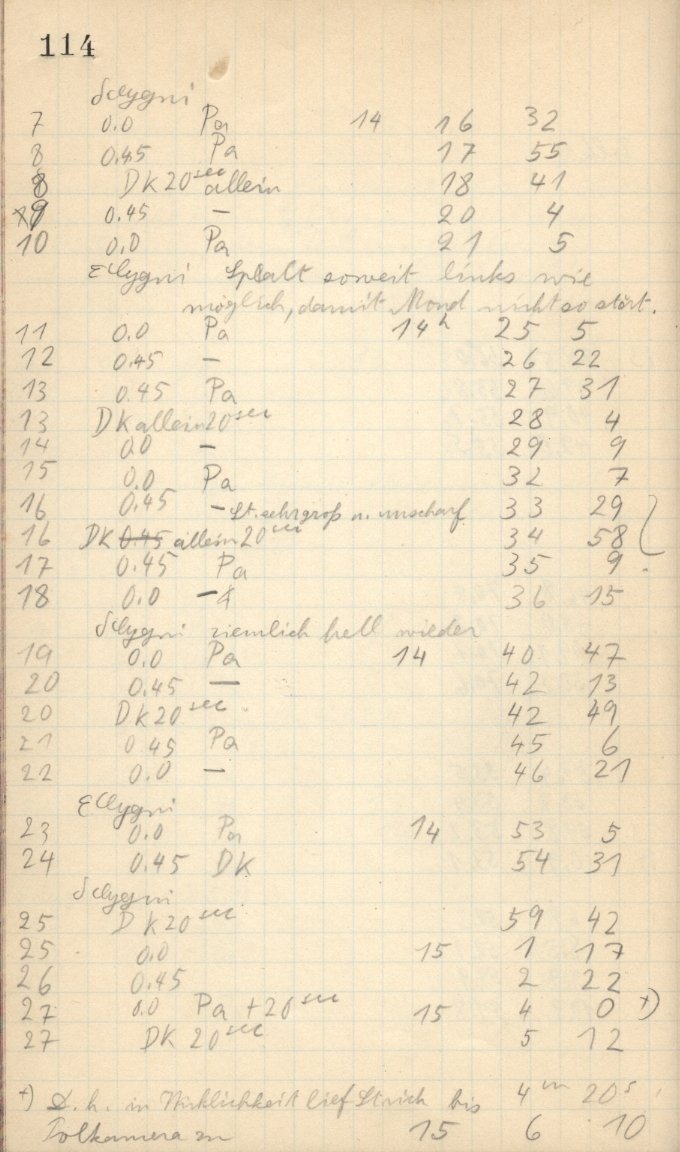 114
δ Cygni
7 0.0 Pa 14 16 32
8 0.45 Pa 17 55
8 DK 20 sec allein 18 41
9 0.45 — 20 4
10 0.0 Pa 21 5
ε Cygni Spalt soweit links wie
möglich, damit Mond nicht so stört.
11 0.0 Pa 14h 25 5
12 0.45 — 26 22
13 0.45 Pa 27 31
13 DK allein 20 sec 28 4
14 0.0 — 29 9
15 0.0 Pa 32 7
16 0.45 — St. sehr groß u. unscharf 33 29
16 DK 0.45 allein 20 sec 34 58
17 0.45 Pa 35 9
18 0.0 — 36 15
δ Cygni ziemlich hell wieder
19 0.0 Pa 14 40 47
20 0.45 — 42 13
20 DK 20 sec 42 49
21 0.45 Pa 45 6
22 0.0 — 46 21
ε Cygni
23 0.0 Pa 14 53 5
24 0.45 DK 54 31
δ Cygni
25 DK 20 sec 59 42
25 0.0 15 1 17
26 0.45 2 22
27 0.0 Pa + 20 sec 15 4 0 +)
27 DK 20 sec 5 12
+) D.h. in Wirklichkeit lief Strich bis 4m 20s
Polkamera zu 15 6 10